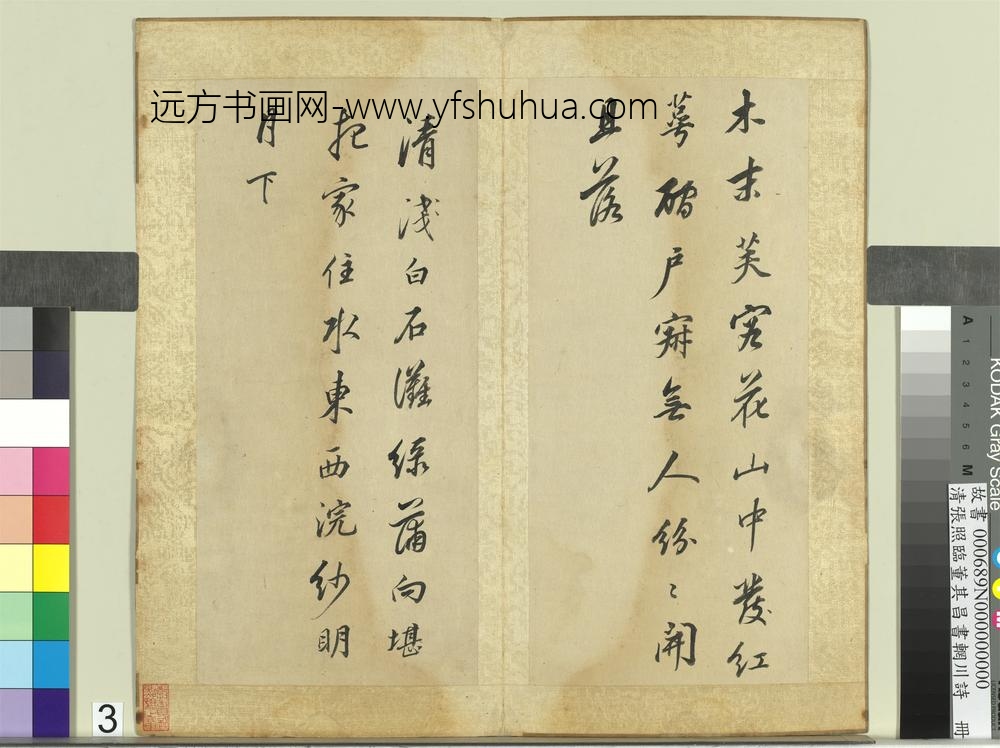 远方书画网-www.yfshuhua.com
木末芙容花山中發紅
萼磵戶寂無人紛〻開
且落
清淺白石灘綠蒲向堪
把家住水東西浣紗明
月下
3
KODAK Gray Scale
A 1 2 3 4 5 6 M
故書 000689N000000000
清張照臨董其昌書輞川詩 冊